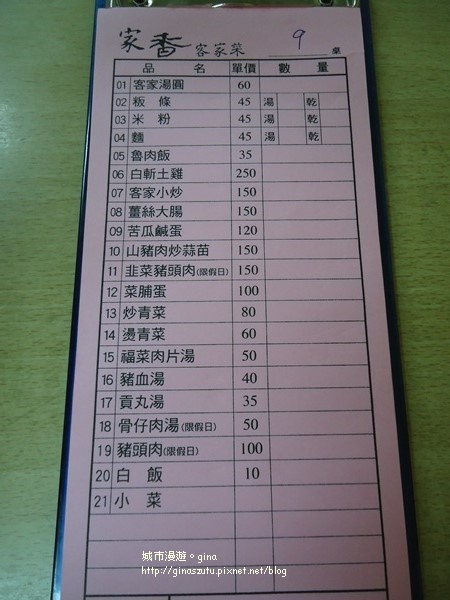 家香客家菜 9 桌
品名 單價 數量
01 客家湯圓 60
02 粄條 45 湯 乾
03 米粉 45 湯 乾
04 麵 45 湯 乾
05 魯肉飯 35
06 白斬土雞 250
07 客家小炒 150
08 薑絲大腸 150
09 苦瓜鹹蛋 120
10 山豬肉炒蒜苗 150
11 韭菜豬頭肉(限假日) 150
12 菜脯蛋 100
13 炒青菜 80
14 燙青菜 60
15 福菜肉片湯 50
16 豬血湯 40
17 貢丸湯 35
18 骨仔肉湯(限假日) 50
19 豬頭肉(限假日) 100
20 白飯 10
21 小菜
城市漫遊。gina
http://ginaszutu.pixnet.net/blog